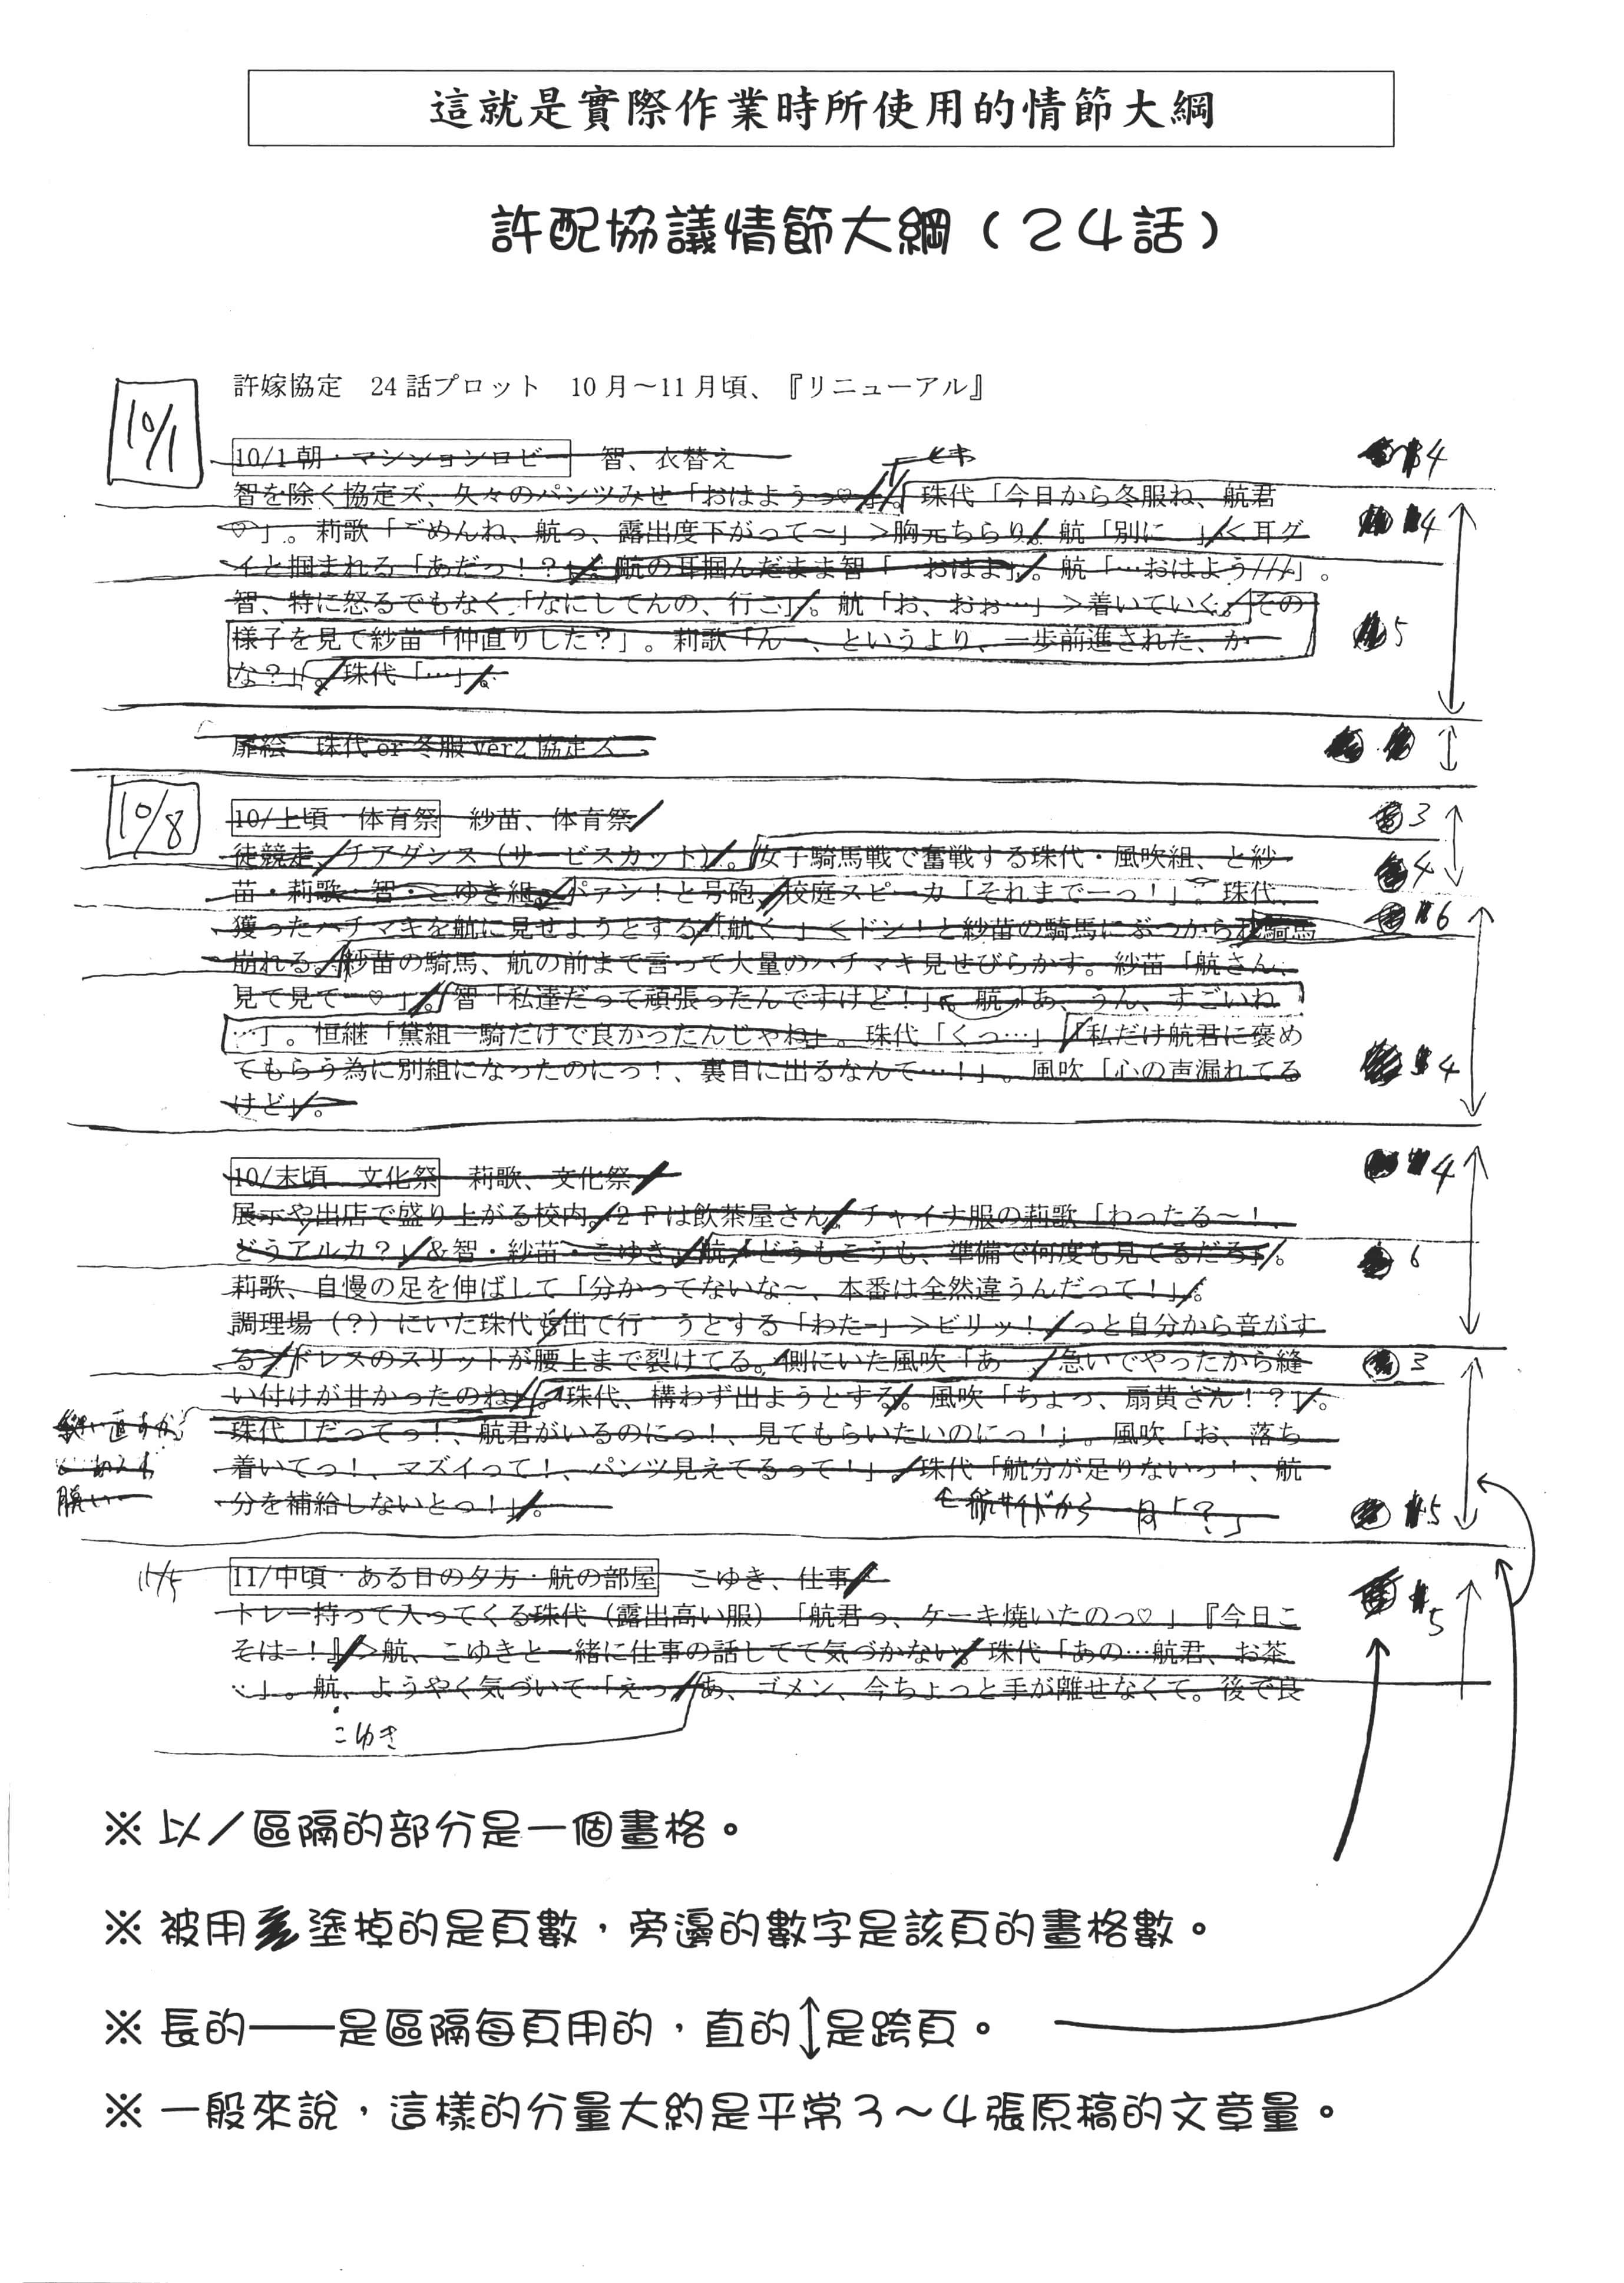 這就是實際作業時所使用的情節大綱
許配協議情節大綱（２４話）
許嫁協定　24話プロット　10月～11月頃、『リニューアル』
10/1
10/1 朝・マンションロビー　智、衣替え
ヒキ
4
智を除く協定ズ、久々のパンツみせ「おはようっ♡」。珠代「今日から冬服ね、航君
♡」。莉歌「ごめんね、航っ、露出度下がって～」＞胸元ちらり。航「別に…」＜耳グ
4
イと掴まれる「あだっ！？」。航の耳掴んだまま智「…おはよ」。航「…おはよう///」。
智、特に怒るでもなく「なにしてんの、行こ」。航「お、おぉ…」＞着いていく。その
様子を見て紗苗「仲直りした？」。莉歌「ん…、というより、一歩前進された、か
5
な？」。珠代「…」。
扉絵　珠代 or 冬服 ver2 協定ズ
10/8
10/上頃・体育祭　紗苗、体育祭
3
徒競走、チアダンス（サービスカット）。女子騎馬戦で奮戦する珠代・風吹組、と紗
4
苗・莉歌・智・こゆき組。パァン！と号砲、校庭スピーカ「それまでーっ！」。珠代、
獲ったハチマキを航に見せようとする「航く…」＜ドン！と紗苗の騎馬にぶつかられ騎馬
6
崩れる。紗苗の騎馬、航の前まで言って大量のハチマキ見せびらかす。紗苗「航さん、
見て見てー♡」。智「私達だって頑張ったんですけど！」。航「あ、うん、すごいね
…」。恒継「黛組一騎だけで良かったんじゃね」。珠代「くっ…」「私だけ航君に褒め
てもらう為に別組になったのにっ！、裏目に出るなんて…！」。風吹「心の声漏れてる
4
けど」。
10/末頃　文化祭　莉歌、文化祭
4
展示や出店で盛り上がる校内。2Fは飲茶屋さん。チャイナ服の莉歌「わったる～！、
どうアルカ？」＆智・紗苗・こゆき。航「どうもこうも、準備で何度も見てるだろ」。
6
莉歌、自慢の足を伸ばして「分かってないな～、本番は全然違うんだって！」。
調理場（？）にいた珠代も出て行こうとする「わたー」＞ビリッ！っと自分から音がす
る＞ドレスのスリットが腰上まで裂けてる。側にいた風吹「あー、急いでやったから縫
3
い付けが甘かったのね」。珠代、構わず出ようとする。風吹「ちょっ、扇黄さん！？」。
珠代「だってっ！、航君がいるのにっ！、見てもらいたいのにっ！」。風吹「お、落ち
着いてっ！、マズイって！、パンツ見えてるって！」。珠代「航分が足りないっ！、航
分を補給しないとっ！」。
航サイドから
5
11/5
11/中頃・ある日の夕方・航の部屋　こゆき、仕事
5
トレー持って入ってくる珠代（露出高い服）「航君っ、ケーキ焼いたのっ♡」『今日こ
そは－！』＞航、こゆきと一緒に仕事の話してて気づかない。珠代「あの…航君、お茶
…」。航、ようやく気づいて「えっ、あ、ゴメン、今ちょっと手が離せなくて。後で良
こゆき
※ 以／區隔的部分是一個畫格。
※ 被用塗掉的是頁數，旁邊的數字是該頁的畫格數。
※ 長的——是區隔每頁用的，直的↕是跨頁。
※ 一般來說，這樣的分量大約是平常３～４張原稿的文章量。